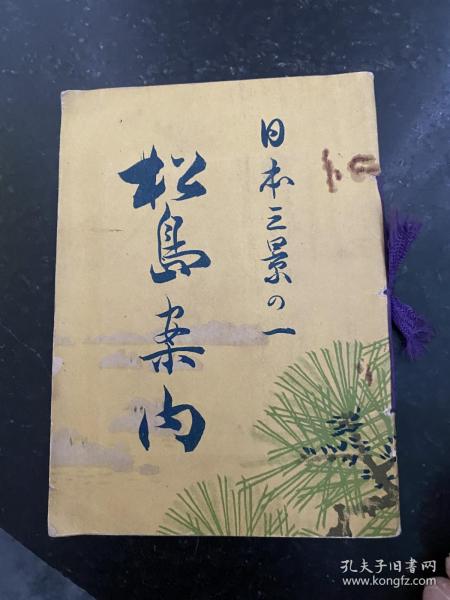 日本三景の一
松島案内
孔夫子旧书网
www.kongfz.com